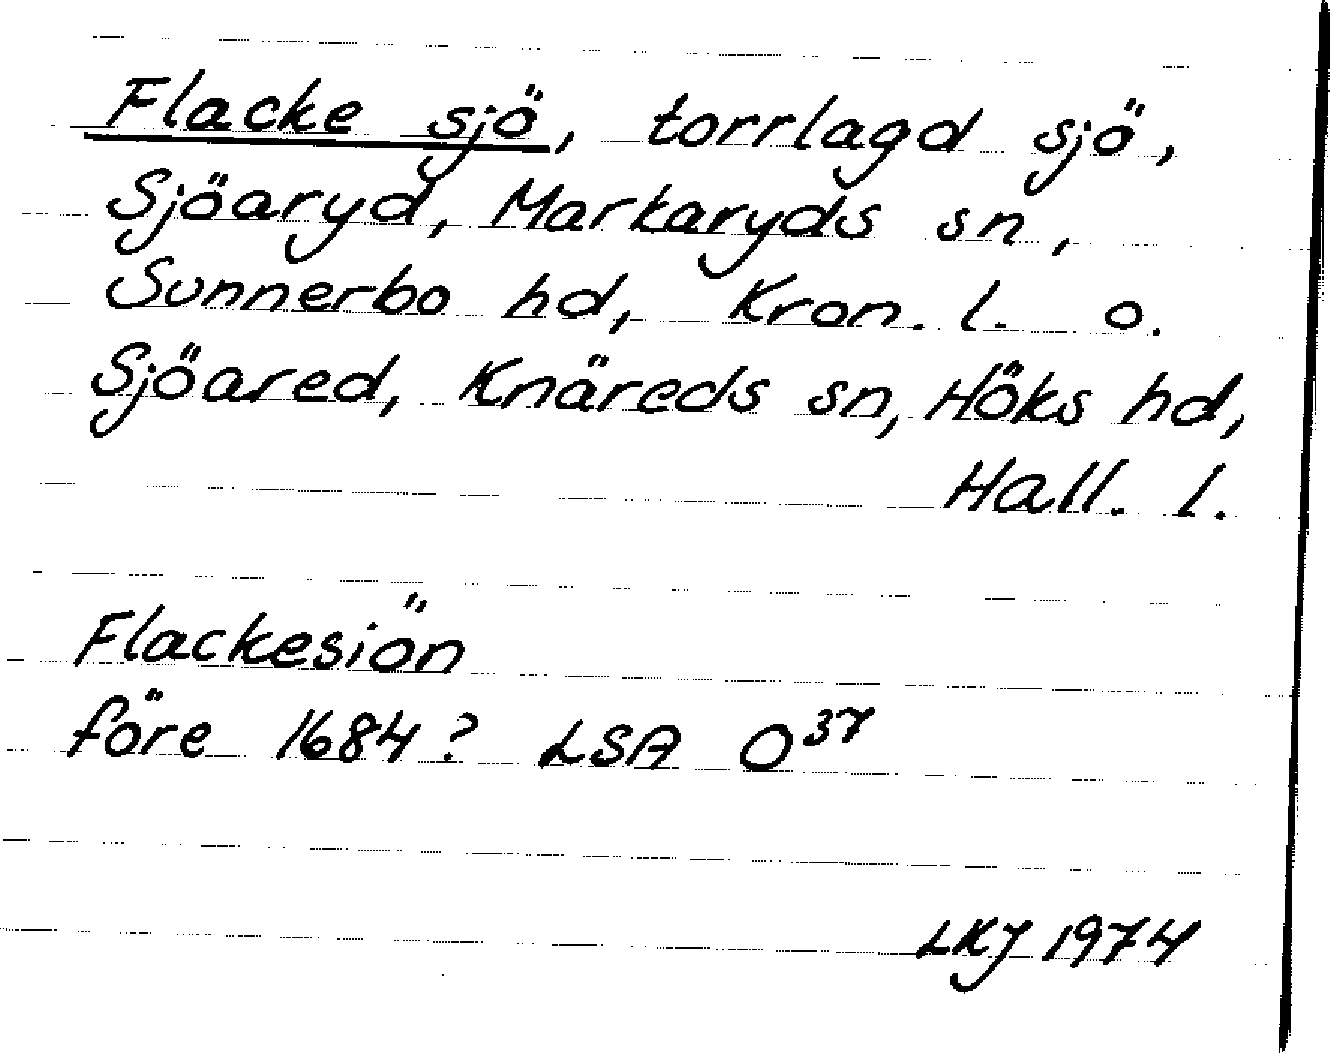 Flacke sjö, torrlagd sjö,
Sjöaryd, Markaryds sn,
Sunnerbo hd, Kron. l. o.
Sjöared, Knäreds sn, Höks hd,
Hall. l.
Flackesiön
före 1684? LSA O³⁷
LKJ 1974